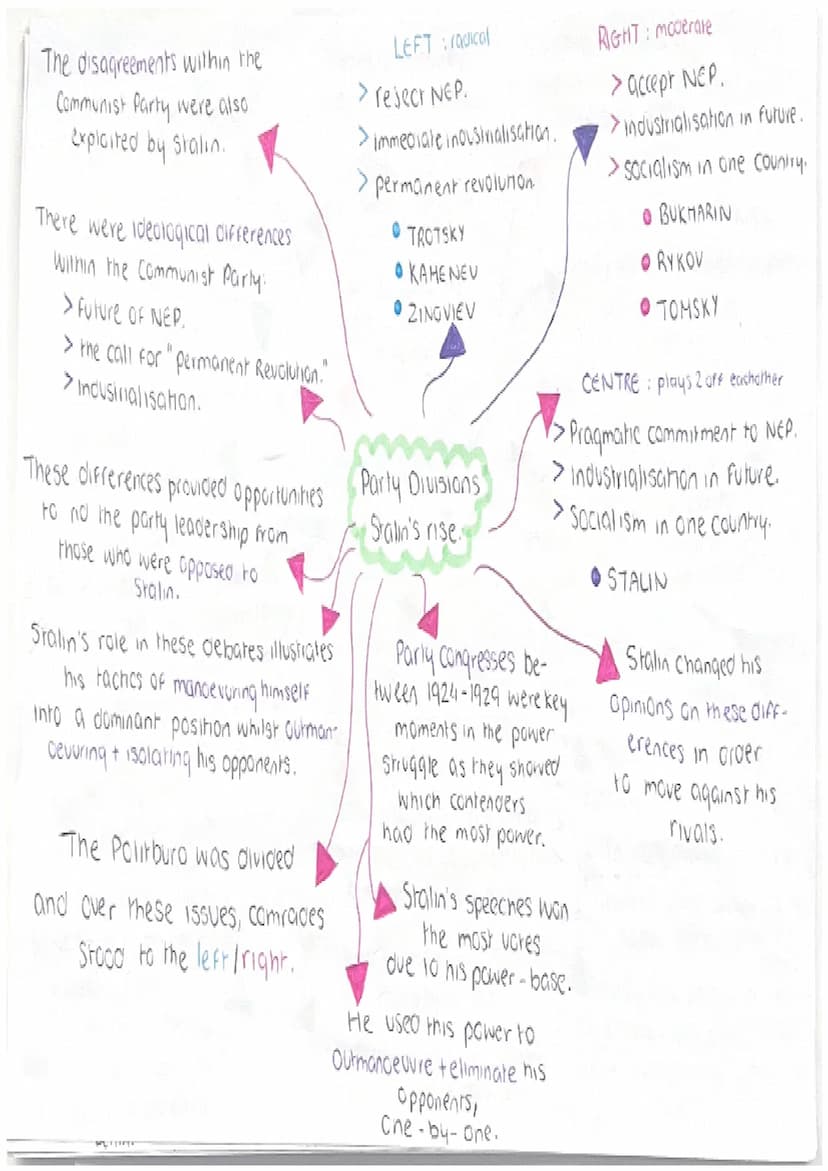 The disagreements within the
Communist Party were also
exploited by Stalin.
LEFT : radical
> reject NEP.
> immediate industrialisation.
> permanent revolution
TROTSKY
KAMENEV
ZINOVIEV
RIGHT : moderate
> accept NEP.
> industrialisation in future.
> socialism in one country.
BUKHARIN
RYKOV
TOMSKY
There were ideological differences
within the Communist Party:
> Future of NEP.
> the call for "permanent Revolution."
> Industrialisation.
CENTRE : plays 2 off eachother
> Pragmatic commitment to NEP.
> Industrialisation in future.
> Socialism in one country.
STALIN
Party Divisions
Stalin's rise.
These differences provided opportunities
to rid the party leadership from
those who were opposed to
Stalin.
Stalin's role in these debates illustrates
his tactics of manoevuring himself
into a dominant position whilst outman-
oevuring + isolating his opponents.
Party Congresses be-
tween 1924-1929 were key
moments in the power
struggle as they showed
which contenders
had the most power.
Stalin changed his
opinions on these diff-
erences in order
to move against his
rivals.
The Politburo was divided
and over these issues, comrades
stood to the left/right.
Stalin's speeches won
the most votes
due to his power-base.
He used this power to
outmanoeuvre + eliminate his
opponents,
one-by-one.